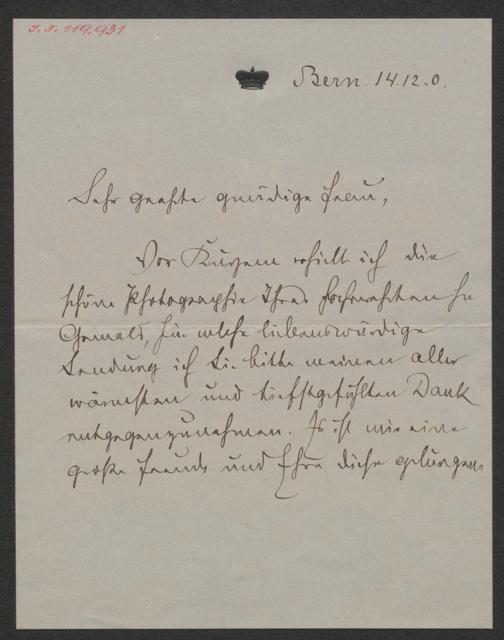 I. N. 119.931
Bern. 14.12.0.
Sehr geehrte gnädige Frau,
Vor Kurzem erhielt ich die
schöne Photographie Ihres hochverehrten H
Gemals, für welche liebenswürdige
Sendung ich Sie bitte meinen aller
wärmsten und tiefstgefühlten Dank
entgegenzunehmen. Es ist mir eine
große Freude und Ehre diese gelungene